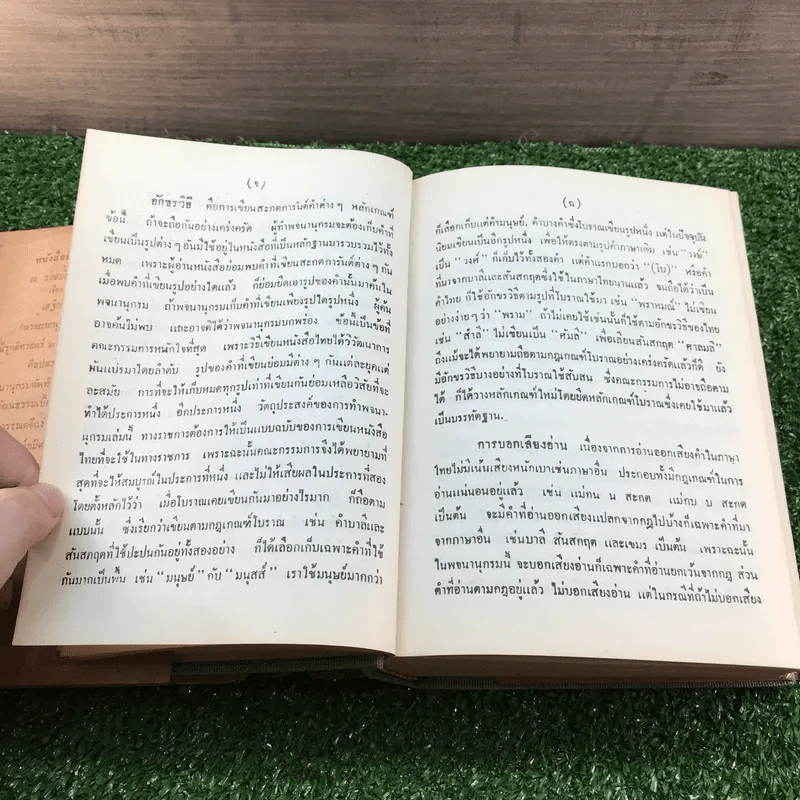 (ง)
อักขรวิธี คือการเขียนสะกดการันต์คำต่าง ๆ หลักเกณฑ์
ข้อนี้ ถ้าจะถือกันอย่างเคร่งครัด ผู้ทำพจนานุกรมจะต้องเก็บคำที่
เขียนเป็นรูปต่าง ๆ อันมีใช้อยู่ในหนังสือที่เป็นหลักฐานมารวบรวมไว้ทั้ง
หมด เพราะผู้อ่านหนังสือย่อมพบคำที่เขียนสะกดการันต์ต่าง ๆ กัน
เมื่อพบคำที่เขียนรูปอย่างใดแล้ว ก็ย่อมยึดเอารูปของคำนั้นมาค้นใน
พจนานุกรม ถ้าพจนานุกรมเก็บคำที่เขียนเพียงรูปใดรูปหนึ่ง ผู้ค้น
อาจค้นไม่พบ และอาจติได้ว่าพจนานุกรมบกพร่อง ข้อนี้เป็นข้อที่
คณะกรรมการหนักใจที่สุด เพราะวิธีเขียนหนังสือไทยได้วิวัฒนาการ
ผันแปรมาโดยลำดับ รูปของคำที่เขียนย่อมมีต่าง ๆ กันแต่ละยุคแต่
ละสมัย การที่จะให้เก็บหมดทุกรูปเท่าที่เขียนกันย่อมเหลือวิสัยที่จะ
ทำได้ประการหนึ่ง อีกประการหนึ่ง วัตถุประสงค์ของการทำพจนา-
นุกรมเล่มนี้ ทางราชการต้องการให้เป็นแบบฉบับของการเขียนหนังสือ
ไทยที่จะใช้ในทางราชการ เพราะฉะนั้นคณะกรรมการจึงได้พยายามที่
สุดที่จะให้สมบูรณ์ในประการที่หนึ่ง และไม่ให้เสียผลในประการที่สอง
โดยตั้งหลักไว้ว่า เมื่อโบราณเคยเขียนกันมาอย่างไรมาก ก็ถือตาม
แบบนั้น ซึ่งเรียกว่าเขียนตามกฎเกณฑ์โบราณ เช่น คำบาลีและ
สันสกฤตที่ใช้ปะปนกันอยู่ทั้งสองอย่าง ก็ได้เลือกเก็บเฉพาะคำที่ใช้
กันมากเป็นพื้น เช่น “มนุษย์” กับ “มนุสส์” เราใช้มนุษย์มากกว่า
(ฉ)
ก็เลือกเก็บแต่คำมนุษย์, คำบางคำซึ่งโบราณเขียนรูปหนึ่ง แต่ในปัจจุบัน
นิยมเขียนเป็นอีกรูปหนึ่ง เพื่อให้ตรงตามรูปคำภาษาเดิม เช่น “วงษ์”
เป็น “วงศ์” ก็เก็บไว้ทั้งสองคำ แต่คำแรกบอกว่า “(โบ)” หรือคำ
ที่มาจากบาลีและสันสกฤตซึ่งใช้ในภาษาไทยนานแล้ว จนถือได้ว่าเป็น
คำไทย ก็ใช้อักขรวิธีตามรูปที่โบราณใช้มา เช่น “พราหมณ์” ไม่เขียน
อย่างง่าย ๆ ว่า “พราม” ถ้าไม่เคยใช้เช่นนั้นก็ใช้ตามอักขรวิธีของไทย
เช่น “สำลี” ไม่เขียนเป็น “ศัมลี” เพื่อเลียนสันสกฤต “ศาลมลี”
ถึงแม้จะได้พยายามถือตามกฎเกณฑ์โบราณอย่างเคร่งครัดแล้วก็ดี ยัง
มีอักขรวิธีบางอย่างที่โบราณใช้สับสน ซึ่งคณะกรรมการไม่อาจถือตาม
ได้ ก็ได้วางหลักเกณฑ์ใหม่โดยยึดหลักเกณฑ์โบราณซึ่งเคยใช้มาแล้ว
เป็นบรรทัดฐาน.
การบอกเสียงอ่าน เนื่องจากการอ่านออกเสียงคำในภาษา
ไทยไม่มีเน้นเสียงหนักเบาเช่นภาษาอื่น ประกอบทั้งมีกฎเกณฑ์ในการ
อ่านแน่นอนอยู่แล้ว เช่น แม่กน น สะกด แม่กบ บ สะกด
เป็นต้น จะมีคำที่อ่านออกเสียงแปลกจากกฎไปบ้างก็เฉพาะคำที่มา
จากภาษาอื่น เช่นบาลี สันสกฤต และเขมร เป็นต้น เพราะฉะนั้น
ในพจนานุกรมนี้ จะบอกเสียงอ่านก็เฉพาะคำที่อ่านยกเว้นจากกฎ ส่วน
คำที่อ่านตามกฎอยู่แล้ว ไม่บอกเสียงอ่าน แต่ในกรณีที่ถ้าไม่บอกเสียง